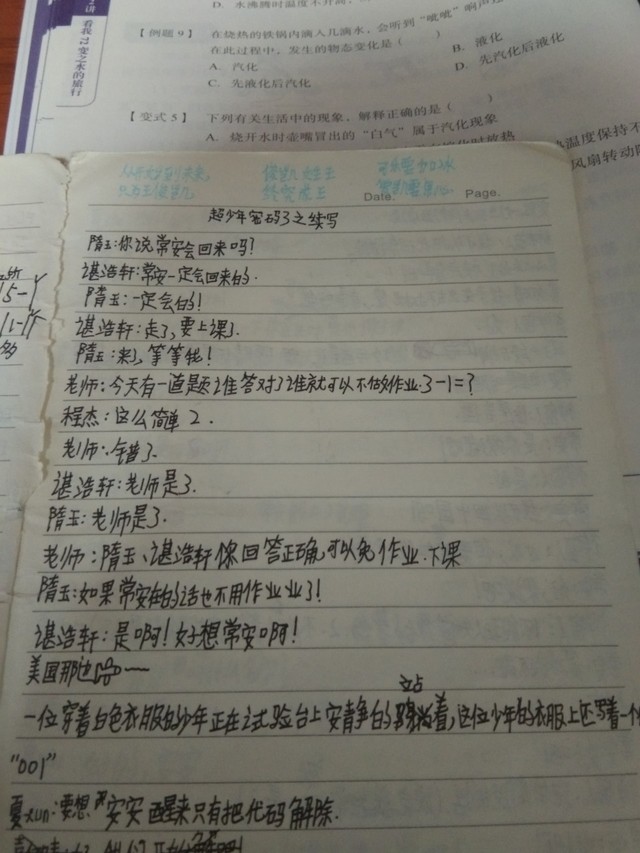 D. 水沸腾时温度不升高，
讲 看我72变之水的旅行
【例题9】 在烧热的铁锅内滴入几滴水，会听到“呲呲”响声
在此过程中，发生的物态变化是（ ）
A. 汽化
B. 液化
C. 先液化后汽化
D. 先汽化后液化
【变式5】 下列有关生活中的现象，解释正确的是（ ）
A. 烧开水时壶嘴冒出的“白气”属于汽化现象
温度保持不
风扇转动
Date.
Page.
超少年密码3之续写
隋玉:你说常安会回来吗?
谌浩轩:常安一定会回来的.
隋玉:一定会的!
谌浩轩:走了,要上课了.
隋玉:来了,等等我!
老师:今天有一道题谁答对了谁就可以不做作业.3-1=?
程杰:这么简单 2.
老师:错了.
谌浩轩:老师是3.
隋玉:老师是3.
老师:隋玉、谌浩轩你回答正确,可以免作业.下课
隋玉:如果常安在的话也不用作业业了!
谌浩轩:是啊!好想常安啊!
美国那边
站
一位穿着白色衣服的少年正在试验台上安静的着,这位少年的衣服上还写着一个
"001"
夏xun:要想安安醒来只有把代码解除.